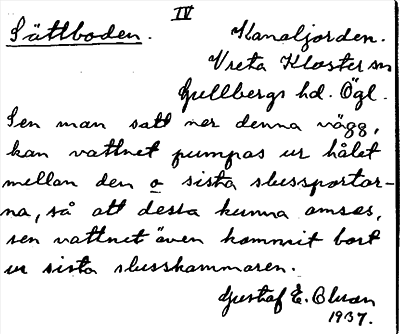 IV
Sättboden. Kanaljorden.
Vreta Kloster sn
Gullbergs hd. Ögl.
Sen man satt ner denna vägg,
kan vattnet pumpas ur hålet
mellan den o sista slussportar-
na, så att dessa kunna omses,
sen vattnet även kommit bort
ur sista slusskammaren.
Gustaf E. Olsson
1937.